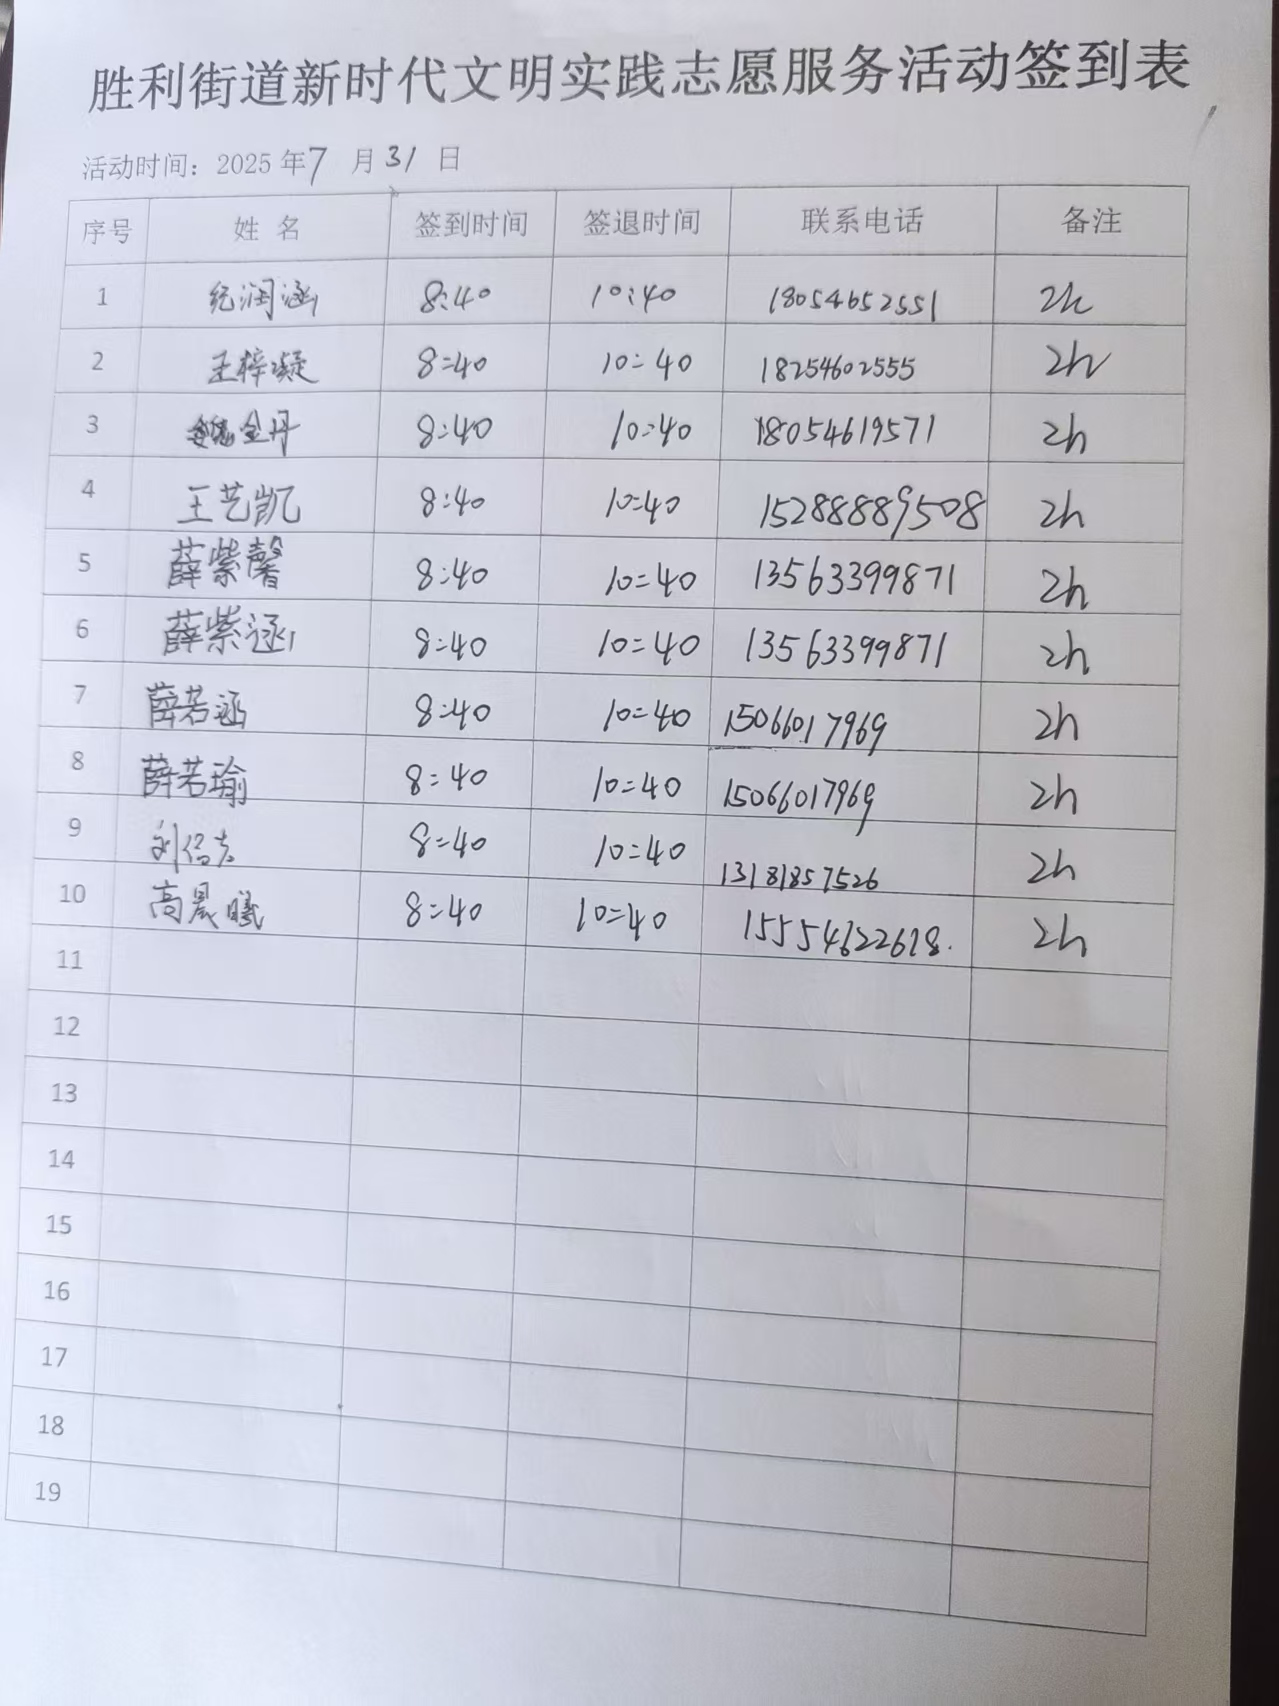 胜利街道新时代文明实践志愿服务活动签到表
活动时间：2025年7月31日
序号 姓名 签到时间 签退时间 联系电话 备注
1 纪润涵 8:40 10:40 18054652551 2h
2 王梓凝 8:40 10:40 18254602555 2h
3 魏金丹 8:40 10:40 18054619571 2h
4 王艺凯 8:40 10:40 15288889508 2h
5 薛紫馨 8:40 10:40 13563399871 2h
6 薛紫涵 8:40 10:40 13563399871 2h
7 薛若涵 8:40 10:40 15066017969 2h
8 薛若瑜 8:40 10:40 15066017969 2h
9 8:40 10:40 13181857526 2h
10 高晨曦 8:40 10:40 15554622618 2h
11
12
13
14
15
16
17
18
19